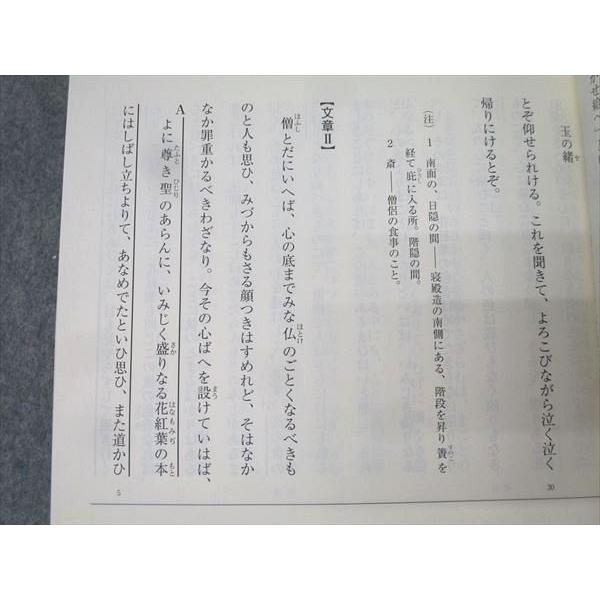 玉の緒
とぞ仰せられける。これを聞きて、よろこびながら泣く泣く
帰りにけるとぞ。
(注) 1 南面の、日隠の間――寝殿造の南側にある、階段を昇り簀を
経て庇に入る所。階隠の間。
2 斎――僧侶の食事のこと。
【文章Ⅱ】
僧とだにいへば、心の底までみな仏のごとくなるべきも
のと人も思ひ、みづからもさる顔つきはすめれど、そはなか
なか罪重かるべきわざなり。今その心ばへを設けていはば、
A よに尊き聖のあらんに、いみじく盛りなる花紅葉の本
にはしばし立ちよりて、あなめでたといひ思ひ、また道かひ
30
5